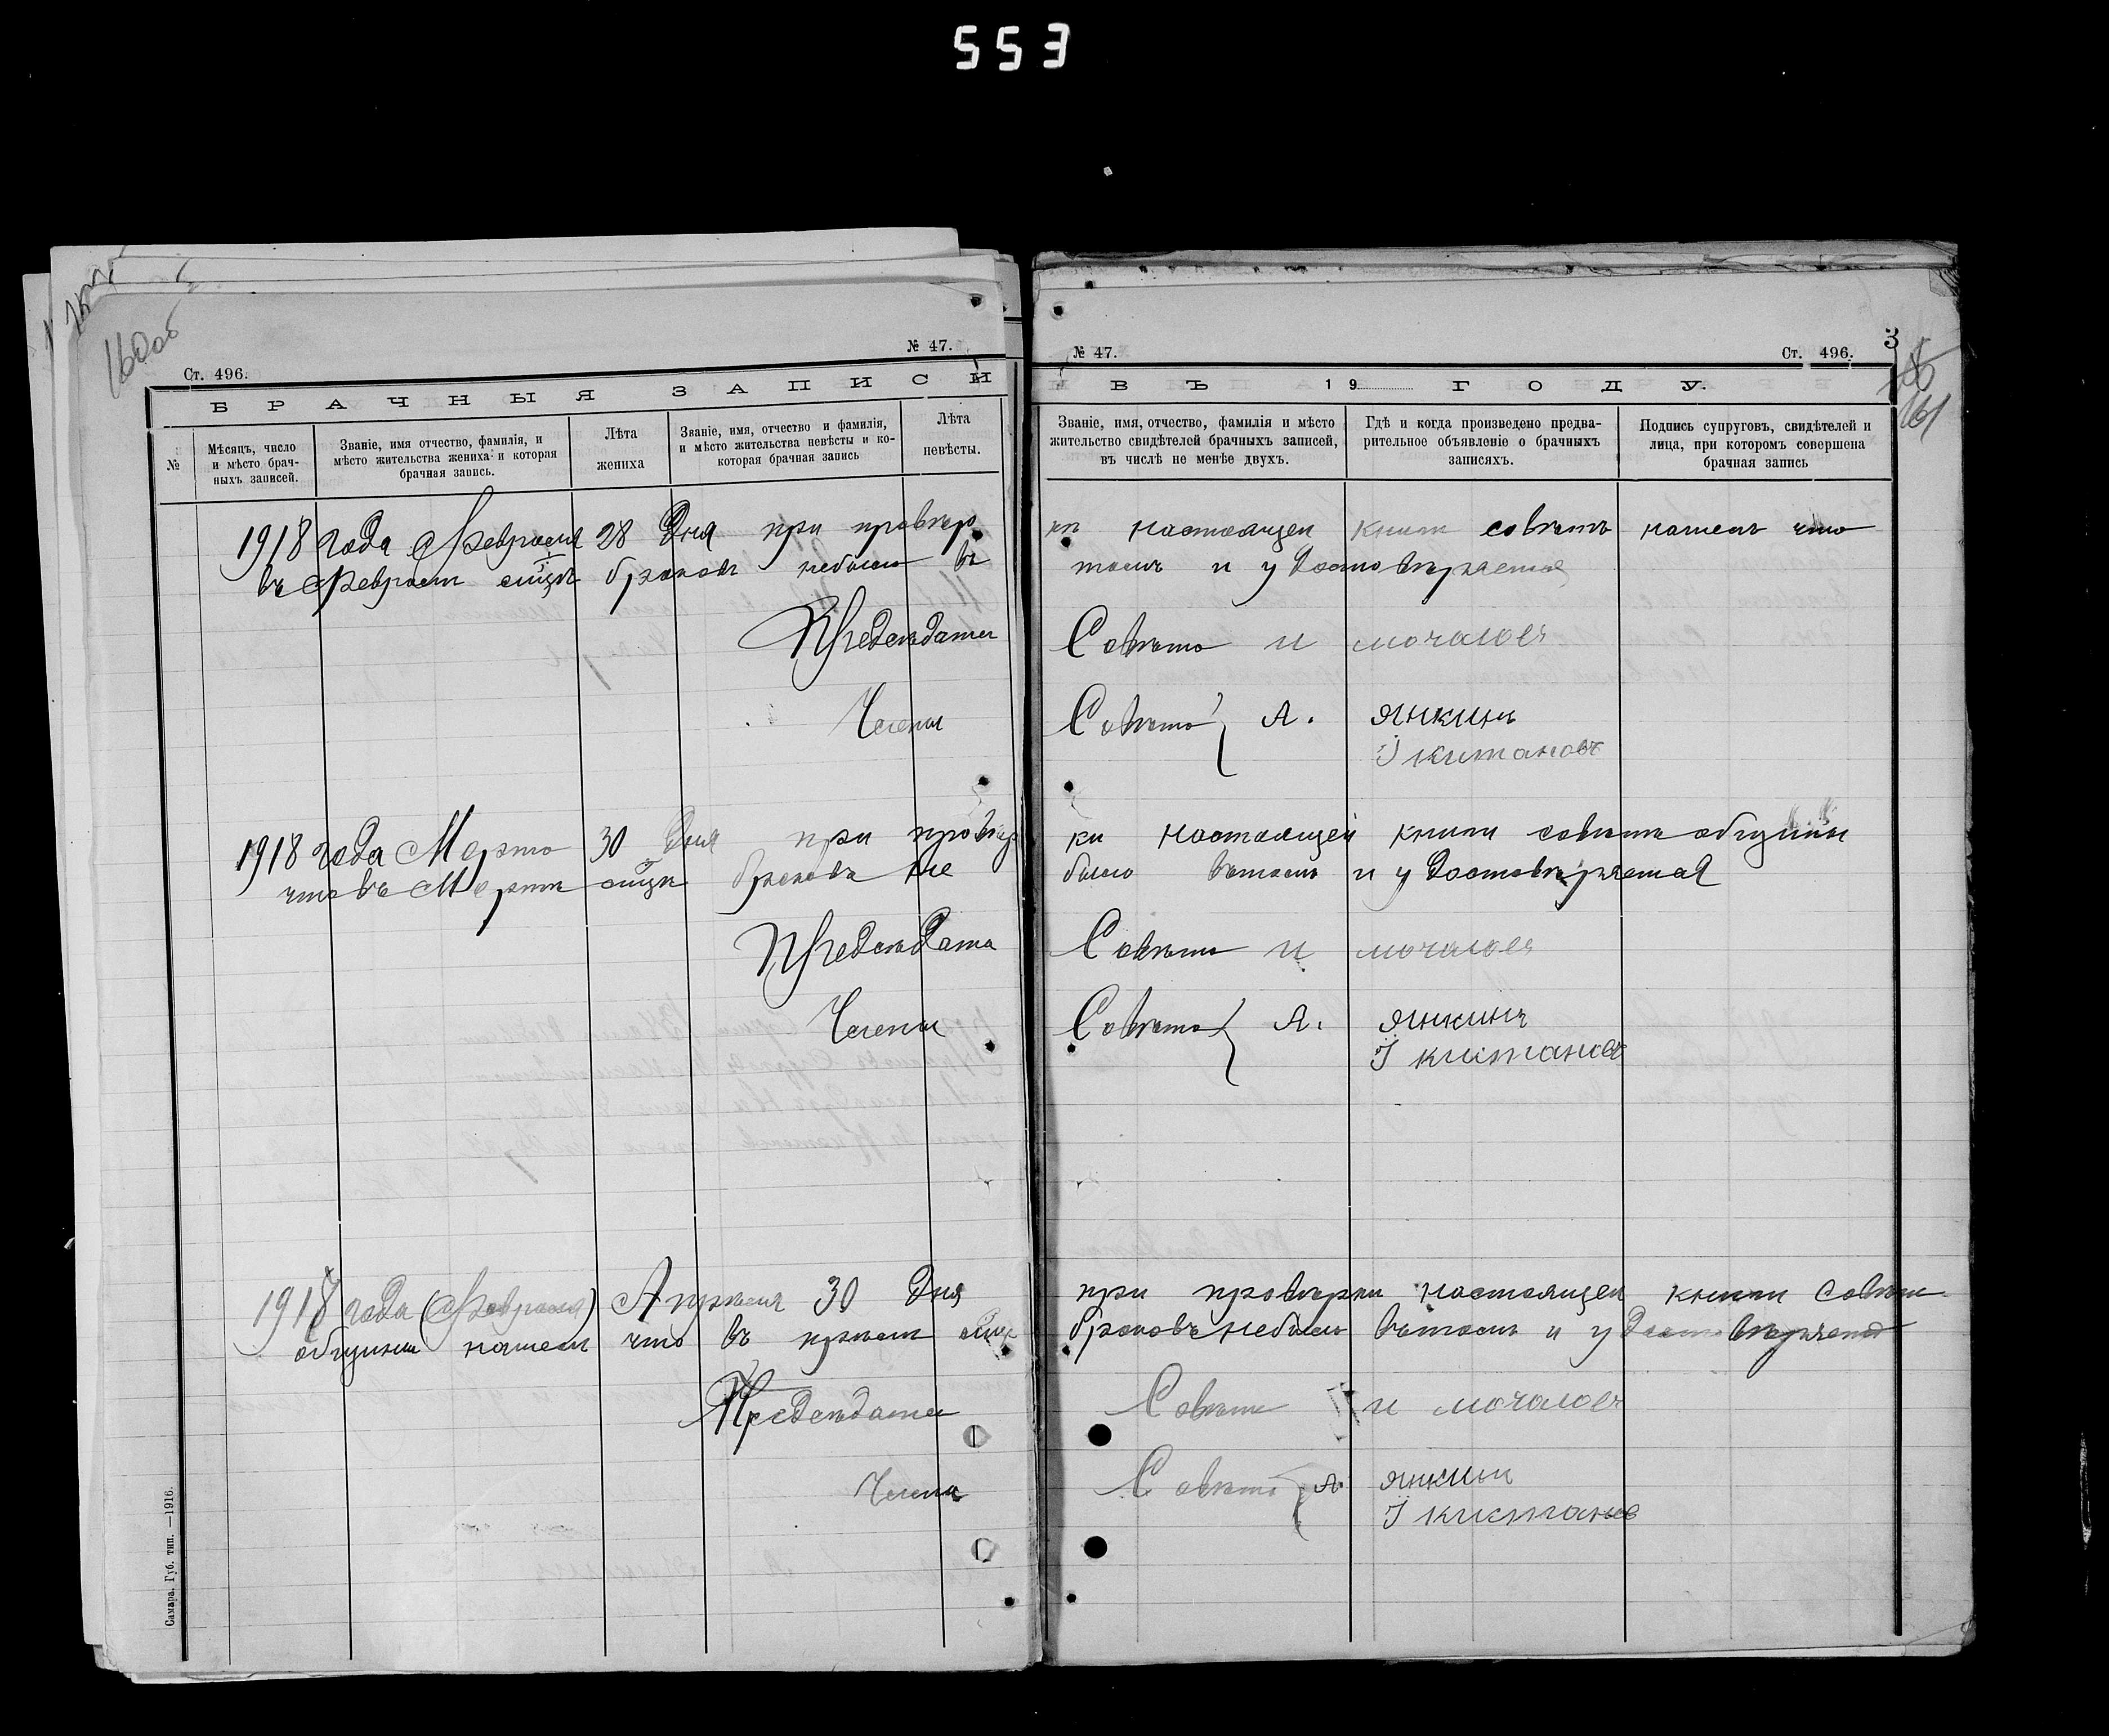 553
160об
№ 47.
Ст. 496.
БРАЧНЫЯ ЗАПИСИ
№
Мѣсяцъ, число и мѣсто брачныхъ записей.
Званіе, имя отчество, фамилія, и мѣсто жительства жениха и которая брачная запись.
Лѣта жениха
Званіе, имя, отчество и фамилія, и мѣсто жительства невѣсты и ко- которая брачная запись
Лѣта невѣсты.
1918 года Февраля 28 дня при провѣр
въ Феврале сиць браковъ небыло въ
Предсѣдател
Члены
1918 года Марта 30 дня при провѣр
что въ Марти сиць браковъ не
Предсѣдате
Члены
1918 года (Февраля) Апреля 30 дня
общины нашел что въ преле сиц
Предсѣдател
Члена
Самара. Губ. тип. —1916.
№ 47.
Ст. 496.
3
161
ВЪ 19 ГОДУ.
Званіе, имя, отчество, фамилія и мѣсто жительство свидѣтелей брачныхъ записей, въ числѣ не менѣе двухъ.
Гдѣ и когда произведено предварительное объявленіе о брачныхъ записяхъ.
Подпись супруговъ, свидѣтелей и лица, при которомъ совершена брачная запись
ки настоящеи книги совѣтъ нашелъ что
томъ и удостовѣряется
Совѣта И мочаловъ
Совѣта А. янкинъ
І китановъ
ки настоящей книги совѣтъ общины
было вътомъ и удостовѣряется
Совѣта И мочаловъ
Совѣта А. янкинъ
І китановъ
при провѣрки настоящеи книги Совѣт
браковъ небыло вътомъ и удостовѣряется
Совѣта И мочаловъ
Совѣта А янкинъ
І китановъ